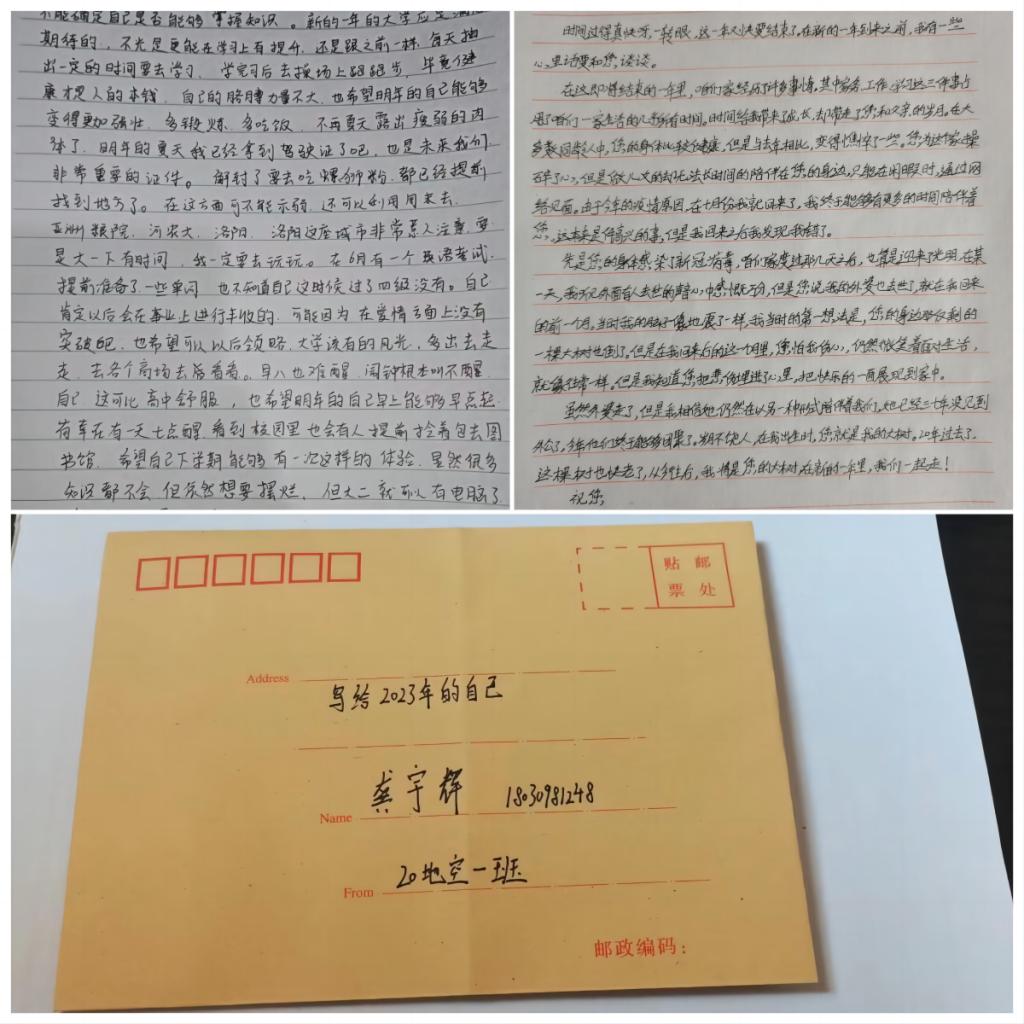 不能确定自己是否能够掌握知识。新的一年的大学应是满怀
期待的，不光是更能在学习上有提个，还是跟之前一样，每天抽
出一定的时间要去学习，学完习后去操场上跑跑步，毕竟健
康才是人的本钱，自己的胳膊力量不大，也希望明年的自己能够
变得更加强壮，多锻炼，多吃饭，不再夏天露出瘦弱的肉
体了，明年的夏天我已经拿到驾驶证了吧，也是未来我们
非常重要的证件。解封了要去吃螺蛳粉，都已经提前
找到地方了。在这方面可不能示弱，还可以利用周末去
亚洲粮院，河农大，洛阳，洛阳这座城市非常系人注意，要
是大一下有时间，我一定要去玩玩。在6月有一个英语考试，
提前准备了一些单词，也不知道自己这时候过了四级没有。自己
肯定以后会在事业上进行丰收的，可能因为在爱情方面上没有
突破吧，也希望可以以后领略，大学该有的风光，多出去走
走，去各个商场去看看。早八也难醒，闹钟根本叫不醒
自己，这可比高中舒服，也希望明年的自己早上能够早点起
荷车在有一天七点醒，看到校园里也会有人提前拎着包去图
书馆，希望自己下学期能够有一次这样的体验，虽然很多
知识都不会，但依然想要摆烂，但大二就可以有电脑了
时间过得真快呀，一转眼，这一年又快要结束了。在新的一年到来之前，我有一些
心里话要和您谈谈。
在这即将结束的一年里，咱们家经历了许多事情，其中家务、工作、学习这三件事占
用了咱们一家生活的几乎所有时间。时间给我带来了成长，却带走了您和父亲的岁月。在大
多数同龄人中，您的身体比较健康，但是与去年相比，变得憔悴了一些。您为这个家操
碎了心，但是做儿女的却无法长时间的陪伴在您的身边，只能在闲暇时，通过网
络见面。由于今年的疫情原因，在十月份我就回来了，我终于能够有更多的时间陪伴着
您，这本来是件高兴的事，但是我回来之后我发现我错了。
先是您的身体感染了新冠病毒，咱们家度过那几天之后，也算是迎来了光明，在某
一天，我望见外面白人去世的
的前一个月，当时我的脑子像地震了一样，我当时的第一想法是，您的身边那仅剩的
一棵大树也倒了。但是在我回来后的这一个月里，您怕我伤心，仍然微笑着面对生活，
就像往常一样。但是我知道您把悲伤埋进了心里，把快乐的一面展现到家中。
虽然外婆走了，但是我相信她仍然在以另一种形式陪伴着我们，她已经三七年没见到
外公了，今年他们终于能够团聚了。岁月不饶人，在我出生时，您就是我的大树。20年过去了，
这棵大树也快老了，从今往后，我将是您的大树，在新的一年里，我们一起走！
祝您
贴 邮
票 处
Address
写给2023年的自己
Name 龚宇辉 18030981248
From 20地空一班
邮政编码：